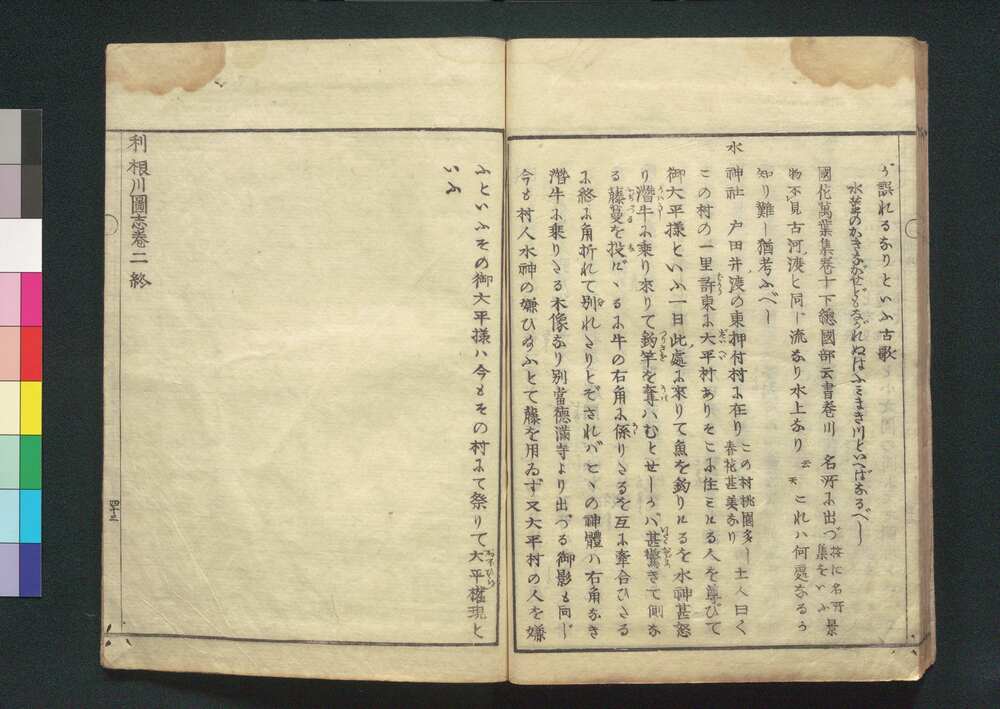 が誤れるなりといふ古歌
水茎のかきながせどもながれぬはふミまき川といへばなるべし
國花萬葉集巻十下總國部云書巻川 名所に出づ 按に名所景
集をいふ
物不見古河渡と同じ流なり水上なり 云云 これハ何處なるか
知り難し猶考ふべし
水神社 戸田井渡の東押付村に在り この村桃園多し土人曰く
春花甚美なり
この村の一里許東に大平村ありそこに住ミける人を尊びて
御大平様といふ一日此處に來りて魚を釣りけるを水神甚怒
り潜牛に乗り來りて釣竿を奪ハむとせしかバ甚驚きて側な
る藤蔓を投げゝるに牛の右角に係りたるを互に牽合ひたる
に終に角折れて別れたりとぞされバとゝの神體ハ右角なき
潜牛に乗りたる木像なり別當徳満寺より出づる御影も同じ
今も村人水神の嫌ひ給ふとて藤を用ゐず又大平村の人を嫌
ふといふその御大平様ハ今もその村にて祭りて大平權現と
いふ
利根川圖志巻二終
四十三